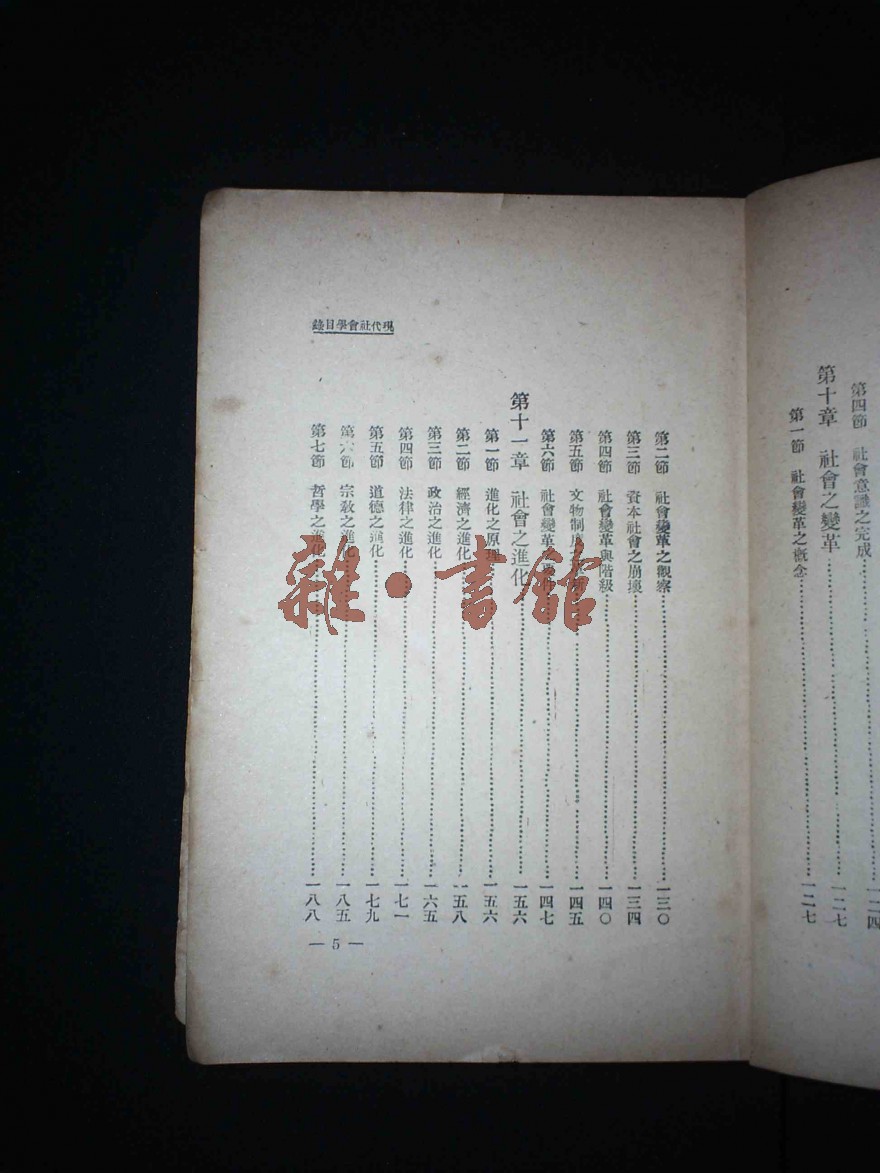 第四節 社會意識之完成 一二四
第十章 社會之變革 一二七
第一節 社會變革之概念 一二七
第二節 社會變革之觀察 一三〇
第三節 資本社會之崩壞 一三四
第四節 社會變革與階級 一四〇
第五節 文物制度 一四五
第六節 社會變革 一四七
第十一章 社會之進化 一五六
第一節 進化之原理 一五六
第二節 經濟之進化 一五八
第三節 政治之進化 一六五
第四節 法律之進化 一七一
第五節 道德之進化 一七九
第六節 宗教之進化 一八五
第七節 哲學之進化 一八八
現代社會學目錄
— 5 —
雜·書館